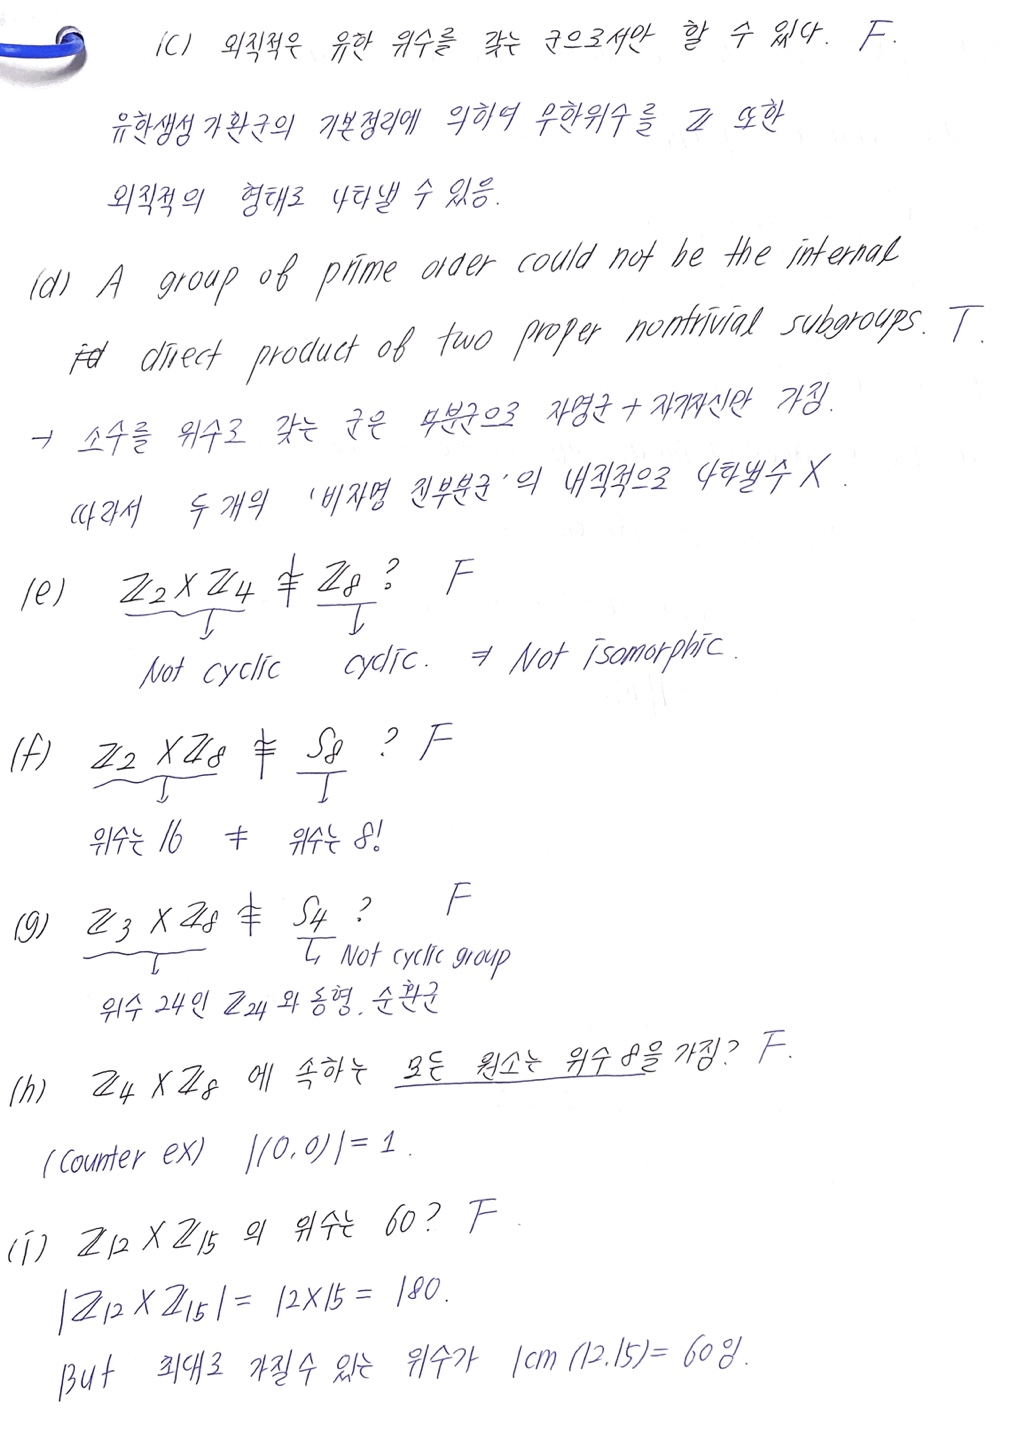 (c) 외직적은 유한 위수를 갖는 군으로서만 할 수 있다. F.
유한생성 가환군의 기본정리에 의하여 무한위수를 Z 또한
외직적의 형태로 나타낼 수 있음.
(d) A group of prime order could not be the internal
direct product of two proper nontrivial subgroups. T.
→ 소수를 위수로 갖는 군은 부분군으로 자명군 + 자기자신만 가짐.
따라서 두 개의 '비자명 진부분군'의 내직적으로 나타낼수 X.
(e) ℤ₂ X ℤ₄ ≠ ℤ₈ ? F
Not cyclic cyclic. ⇒ Not isomorphic.
(f) ℤ₂ X ℤ₈ ≠ S₈ ? F
위수는 16 ≠ 위수는 8!
(g) ℤ₃ X ℤ₈ ≠ S₄ ? F
Not cyclic group
위수 24인 ℤ₂₄와 동형. 순환군
(h) ℤ₄ X ℤ₈ 에 속하는 모든 원소는 위수 8을 가짐? F.
(Counter ex) |(0,0)| = 1.
(i) ℤ₁₂ X ℤ₁₅ 의 위수는 60? F.
|ℤ₁₂ X ℤ₁₅| = 12X15 = 180.
But 최대로 가질 수 있는 위수가 lcm (12.15) = 60임.